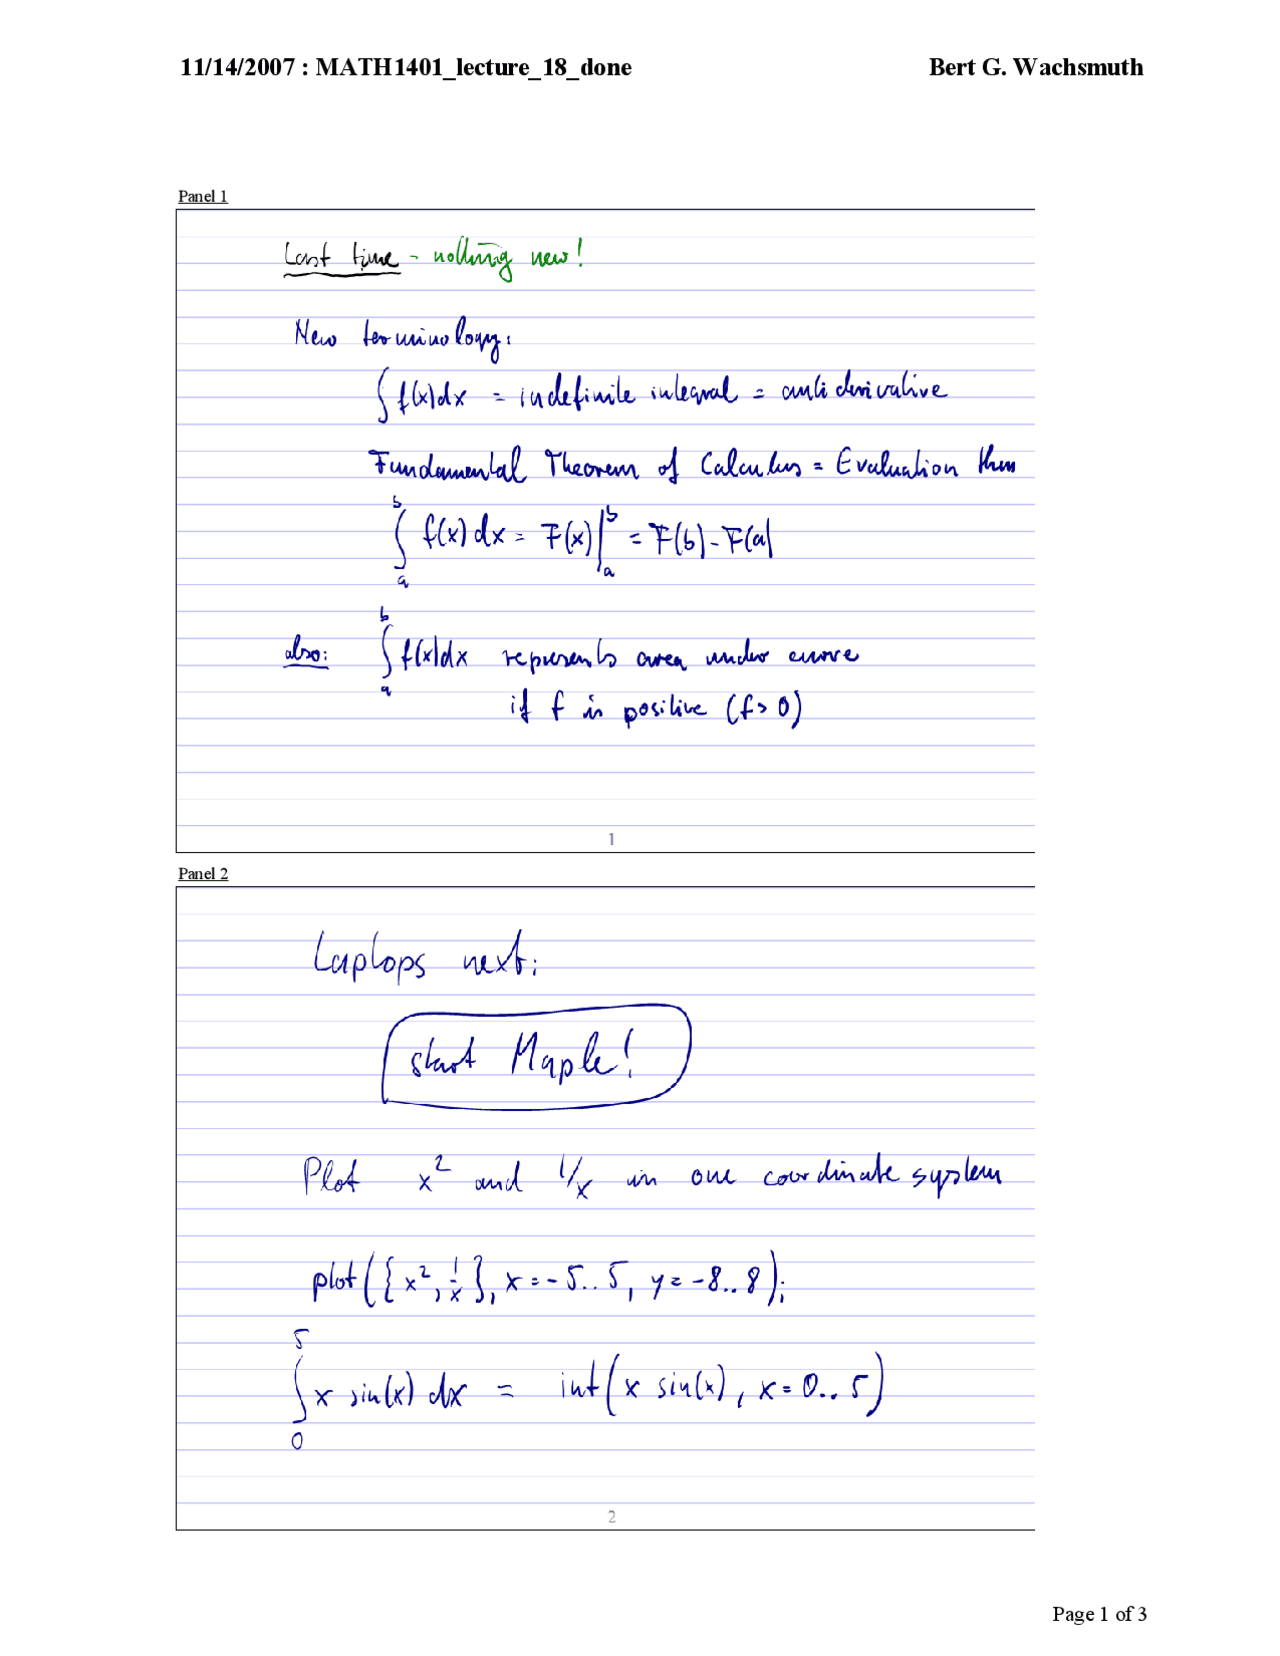 11/14/2007 : MATH1401_lecture_18_done Bert G. Wachsmuth
Panel 1
Last time - nothing new!
New terminology:
∫ f(x)dx = indefinite integral = antiderivative
Fundamental Theorem of Calculus = Evaluation thm
∫_a^b f(x) dx = F(x)|_a^b = F(b) - F(a)
also: ∫_a^b f(x)dx represents area under curve
if f is positive (f > 0)
1
Panel 2
Laptops next:
start Maple!
Plot x² and 1/x in one coordinate system
plot({x², 1/x}, x = -5..5, y = -8..8);
∫_0^5 x sin(x) dx = int(x sin(x), x = 0..5)
2
Page 1 of 3